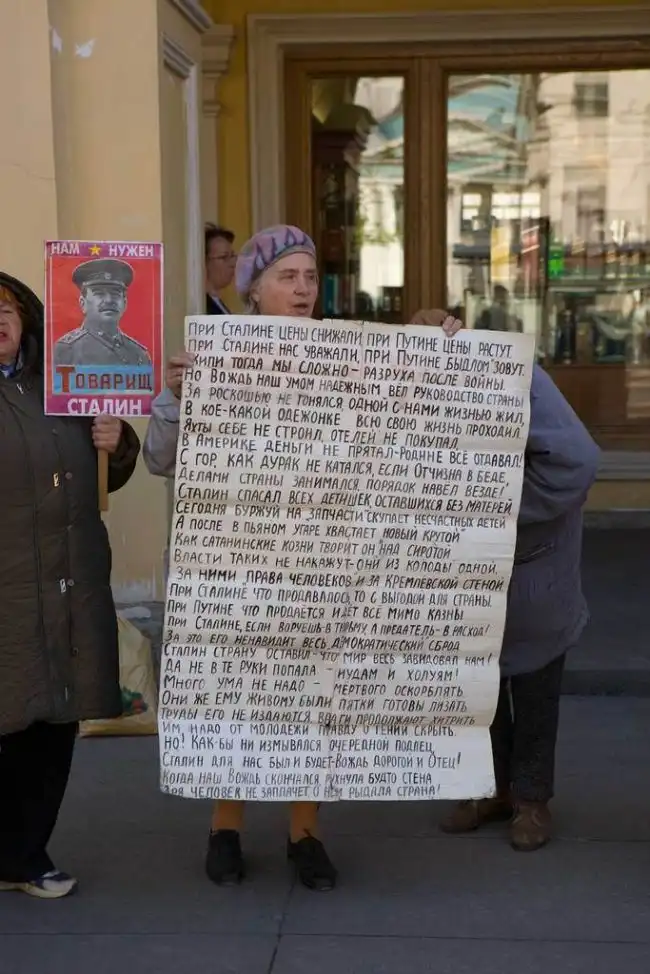 НАМ НУЖЕН
ТОВАРИЩ
СТАЛИН
ПРИ СТАЛИНЕ ЦЕНЫ СНИЖАЛИ, ПРИ ПУТИНЕ ЦЕНЫ РАСТУТ.
ПРИ СТАЛИНЕ НАС УВАЖАЛИ, ПРИ ПУТИНЕ БЫДЛОМ ЗОВУТ.
ЖИЛИ ТОГДА МЫ СЛОЖНО - РАЗРУХА ПОСЛЕ ВОЙНЫ.
НО ВОЖДЬ НАШ УМОМ НАДЕЖНЫМ ВЁЛ РУКОВОДСТВО СТРАНЫ
ЗА РОСКОШЬЮ НЕ ГОНЯЛСЯ, ОДНОЙ С НАМИ ЖИЗНЬЮ ЖИЛ,
В КОЕ-КАКОЙ ОДЕЖОНКЕ ВСЮ СВОЮ ЖИЗНЬ ПРОХОДИЛ.
ЯХТЫ СЕБЕ НЕ СТРОИЛ, ОТЕЛЕЙ НЕ ПОКУПАЛ,
В АМЕРИКЕ ДЕНЬГИ НЕ ПРЯТАЛ-РОДИНЕ ВСЁ ОТДАВАЛ!
С ГОР, КАК ДУРАК НЕ КАТАЛСЯ, ЕСЛИ ОТЧИЗНА В БЕДЕ,
ДЕЛАМИ СТРАНЫ ЗАНИМАЛСЯ, ПОРЯДОК НАВЁЛ ВЕЗДЕ!
СТАЛИН СПАСАЛ ВСЕХ ДЕТИШЕК, ОСТАВШИХСЯ БЕЗ МАТЕРЕЙ,
СЕГОДНЯ БУРЖУЙ НА "ЗАПЧАСТИ" СКУПАЕТ НЕСЧАСТНЫХ ДЕТЕЙ
А ПОСЛЕ В ПЬЯНОМ УГАРЕ ХВАСТАЕТ "НОВЫЙ КРУТОЙ"
КАК САТАНИНСКИЕ КОЗНИ ТВОРИТ ОН НАД СИРОТОЙ
ВЛАСТИ ТАКИХ НЕ НАКАЖУТ-ОНИ ИЗ КОЛОДЫ ОДНОЙ,
ЗА НИМИ ПРАВА ЧЕЛОВЕКОВ И ЗА КРЕМЛЁВСКОЙ СТЕНОЙ
ПРИ СТАЛИНЕ ЧТО ПРОДАВАЛОСЬ, ТО С ВЫГОДОЙ ДЛЯ СТРАНЫ,
ПРИ ПУТИНЕ ЧТО ПРОДАЁТСЯ ИДЁТ ВСЁ МИМО КАЗНЫ
ПРИ СТАЛИНЕ, ЕСЛИ ВОРУЕШЬ-В ТЮРЬМУ, А ПРЕДАТЕЛЬ-В РАСХОД!
ЗА ЭТО ЕГО НЕНАВИДИТ ВЕСЬ ДЕМОКРАТИЧЕСКИЙ СБРОД
СТАЛИН СТРАНУ ОСТАВИЛ-ЧТО МИР ВЕСЬ ЗАВИДОВАЛ НАМ!
ДА НЕ В ТЕ РУКИ ПОПАЛА - ИУДАМ И ХОЛУЯМ!
МНОГО УМА НЕ НАДО - МЕРТВОГО ОСКОРБЛЯТЬ.
ОНИ ЖЕ ЕМУ ЖИВОМУ БЫЛИ ПЯТКИ ГОТОВЫ ЛИЗАТЬ
ТРУДЫ ЕГО НЕ ИЗДАЮТСЯ, ВРАГИ ПРОДОЛЖАЮТ ХИТРИТЬ
ИМ НАДО ОТ МОЛОДЕЖИ ПРАВДУ О ГЕНИИ СКРЫТЬ.
НО! КАК-БЫ НИ ИЗМЫВАЛСЯ ОЧЕРЕДНОЙ ПОДЛЕЦ,
СТАЛИН ДЛЯ НАС БЫЛ И БУДЕТ-ВОЖДЬ ДОРОГОЙ И ОТЕЦ!
КОГДА НАШ ВОЖДЬ СКОНЧАЛСЯ, РУХНУЛА БУДТО СТЕНА
ЗРЯ ЧЕЛОВЕК НЕ ЗАПЛАЧЕТ О НЁМ РЫДАЛА СТРАНА!